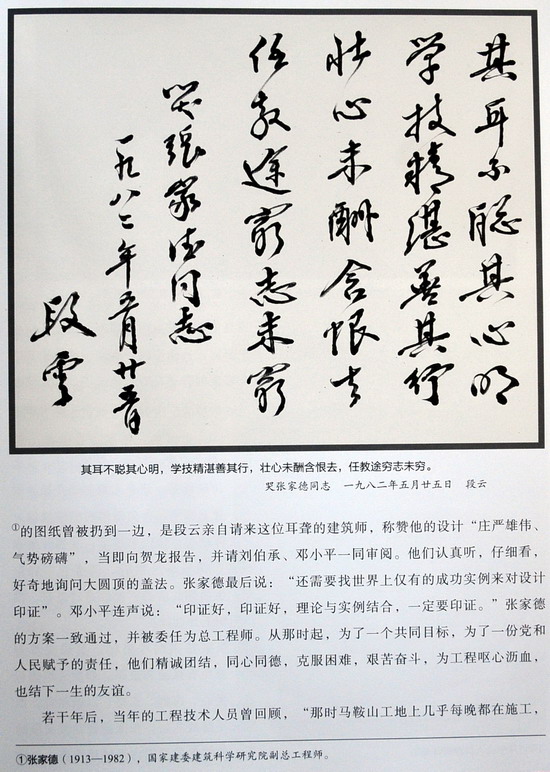 其耳不聪其心明
学技精湛善其行
壮心未酬含恨去
任教途穷志未穷
哭张家德同志
一九八二年五月廿五日
段云
其耳不聪其心明，学技精湛善其行，壮心未酬含恨去，任教途穷志未穷。
哭张家德同志　一九八二年五月廿五日　段云
①的图纸曾被扔到一边，是段云亲自请来这位耳聋的建筑师，称赞他的设计“庄严雄伟、
气势磅礴”，当即向贺龙报告，并请刘伯承、邓小平一同审阅。他们认真听，仔细看，
好奇地询问大圆顶的盖法。张家德最后说：“还需要找世界上仅有的成功实例来对设计
印证”。邓小平连声说：“印证好，印证好，理论与实例结合，一定要印证。”张家德
的方案一致通过，并被委任为总工程师。从那时起，为了一个共同目标，为了一份党和
人民赋予的责任，他们精诚团结，同心同德，克服困难，艰苦奋斗，为工程呕心沥血，
也结下一生的友谊。
若干年后，当年的工程技术人员曾回顾，“那时马鞍山工地上几乎每晚都在施工，
①张家德（1913—1982），国家建委建筑科学研究院副总工程师。